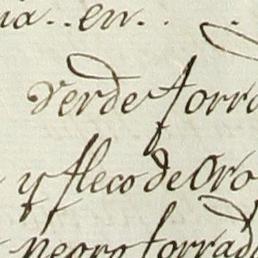 en..
verde forra
y fleco de Oro
negro forrad